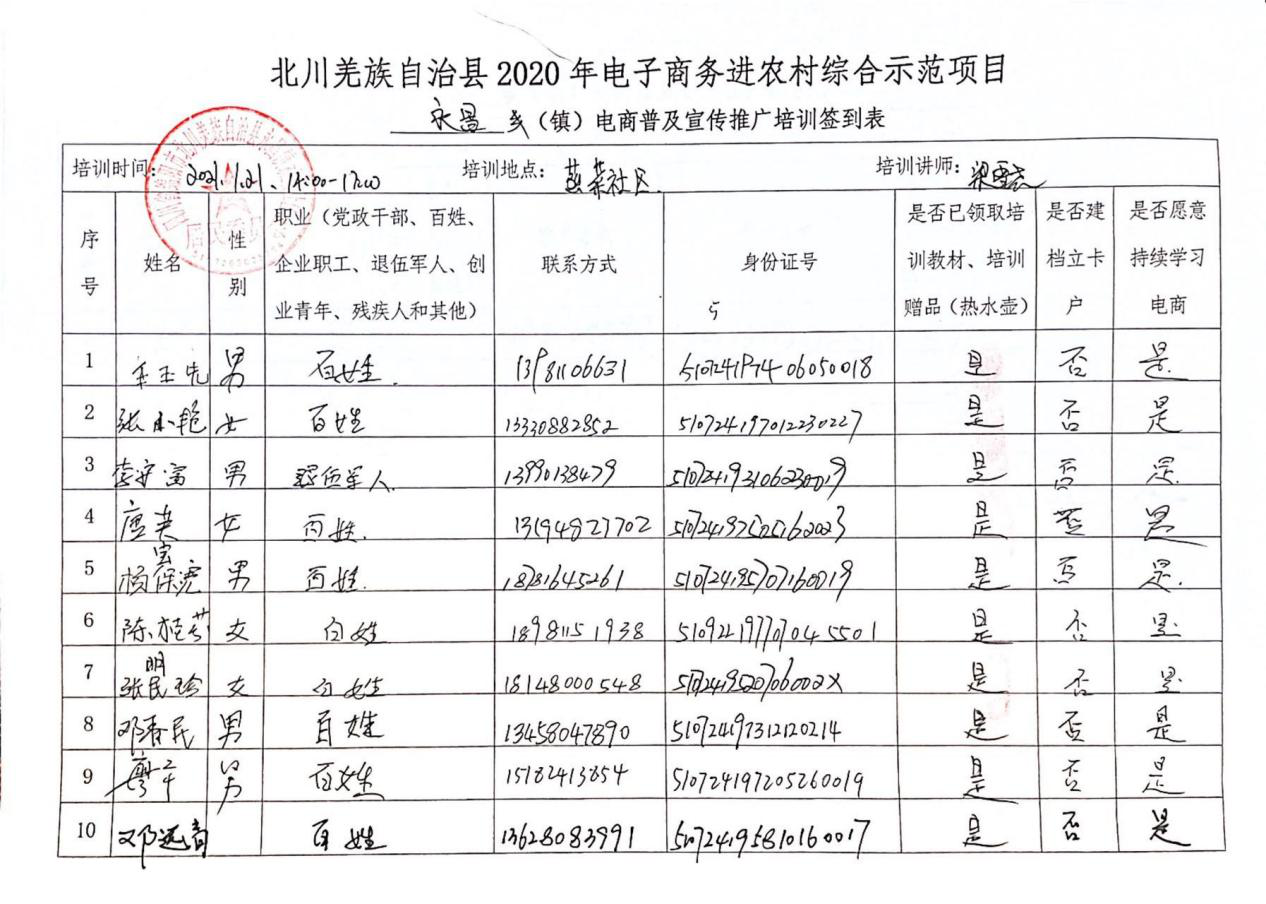 北川羌族自治县2020年电子商务进农村综合示范项目
永昌 乡(镇)电商普及宣传推广培训签到表
培训时间: 2021.1.21、14:00-17:00 培训地点: 社区. 培训讲师: 梁
序号 姓名 性别 职业(党政干部、百姓、企业职工、退伍军人、创业青年、残疾人和其他) 联系方式 身份证号 是否已领取培训教材、培训赠品(热水壶) 是否建档立卡户 是否愿意持续学习电商
1 男 百姓. 13981106631 510724197406050018 是 否 是
2 张小艳 女 百姓 13330882852 510724197012230227 是 否 是
3 李守富 男 退伍军人 13990138479 510724193106230019 是 否 是
4 唐英 女 百姓. 13194827702 510724197505162023 是 否 是
5 杨保虎 宝 男 百姓. 18781645261 510724195707160019 是 否 是
6 陈桂芳 女 百姓 18981151938 510922197707045501 是 否 是
7 张民珍 明 女 百姓 18148000548 51072419520706002X 是 否 是
8 邓春民 男 百姓 13458047890 510724197312120214 是 否 是
9 男 百姓 15182413854 510724197205260019 是 否 是
10 邓远 百姓 13628083991 510724195810160017 是 否 是